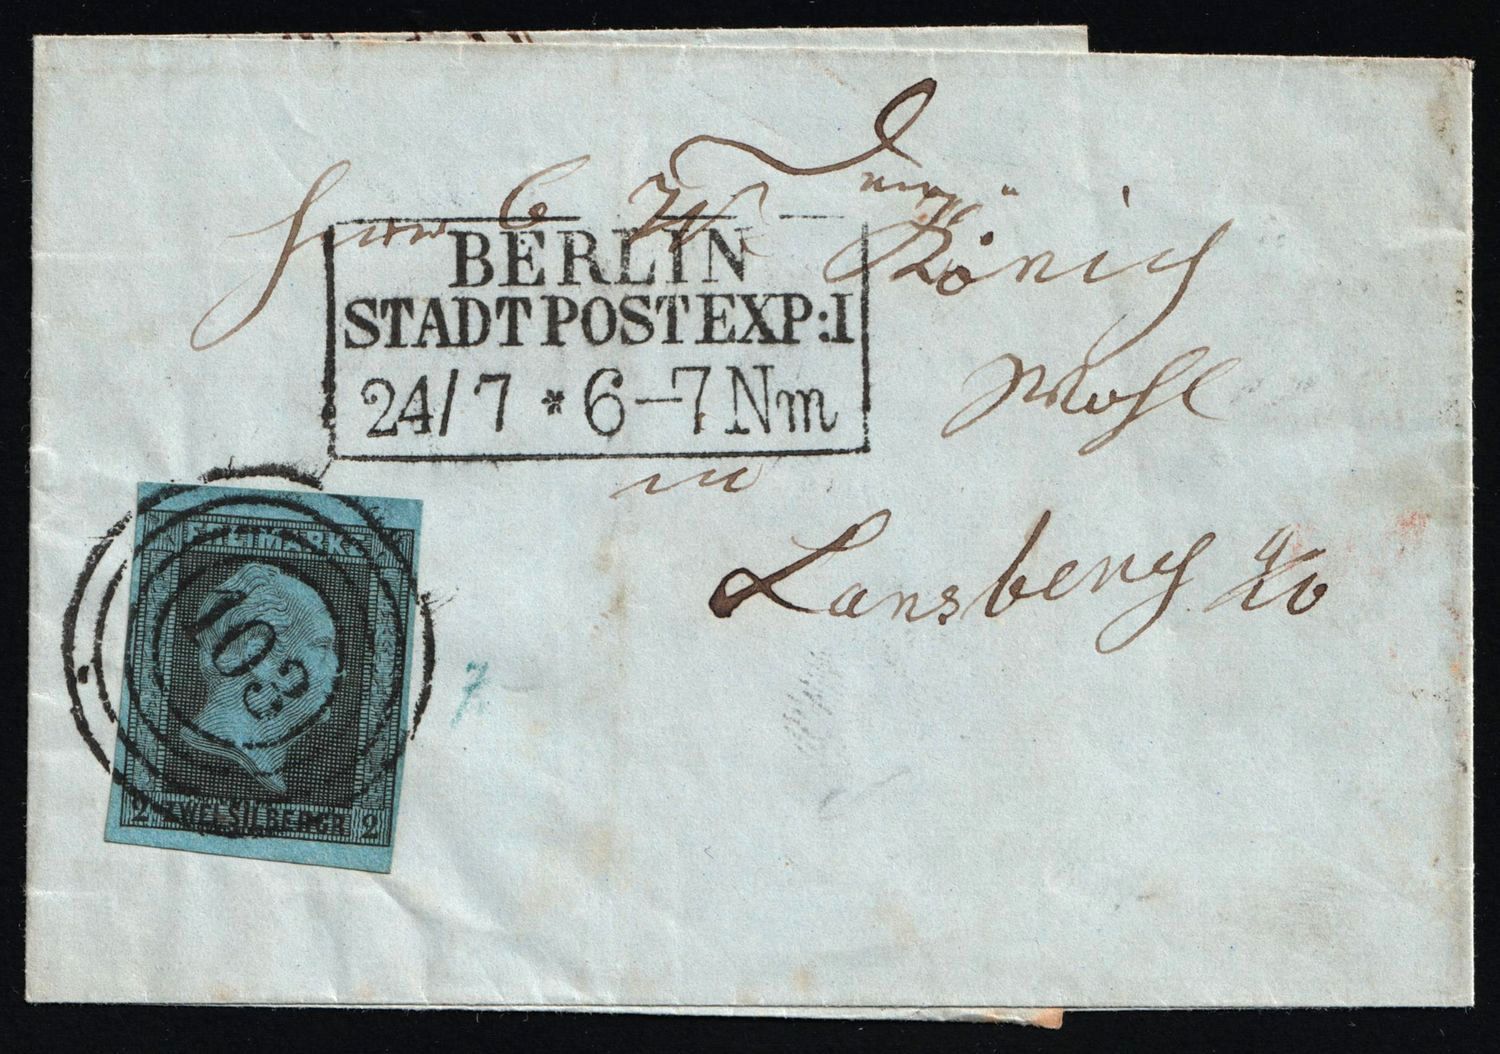 Herrn C W König
BERLIN
STADTPOSTEXP:I
24/7 * 6–7 Nm
Wohl
in
Lansberg a/W
FREIMARKE
103
2 ZWEI SILBERGR 2
7